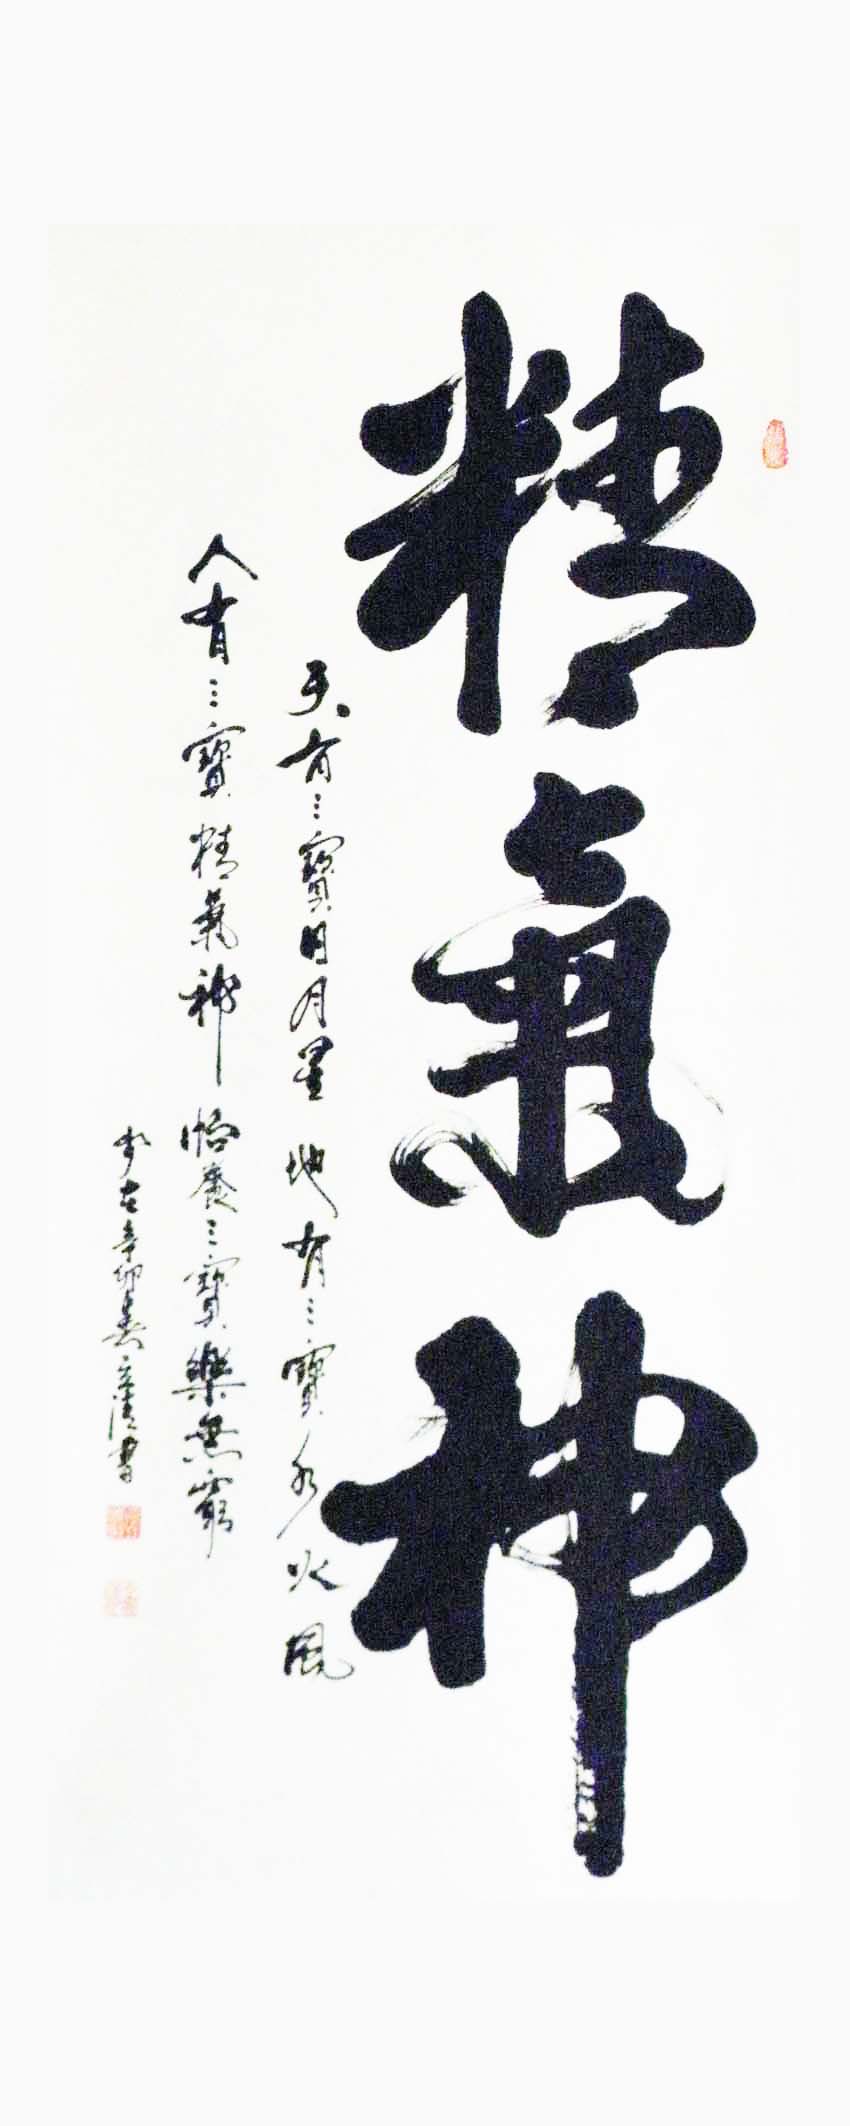 精氣神
天有三寶日月星 地有三寶水火風
人有三寶精氣神 怡養三寶樂無窮
岁在辛卯 書